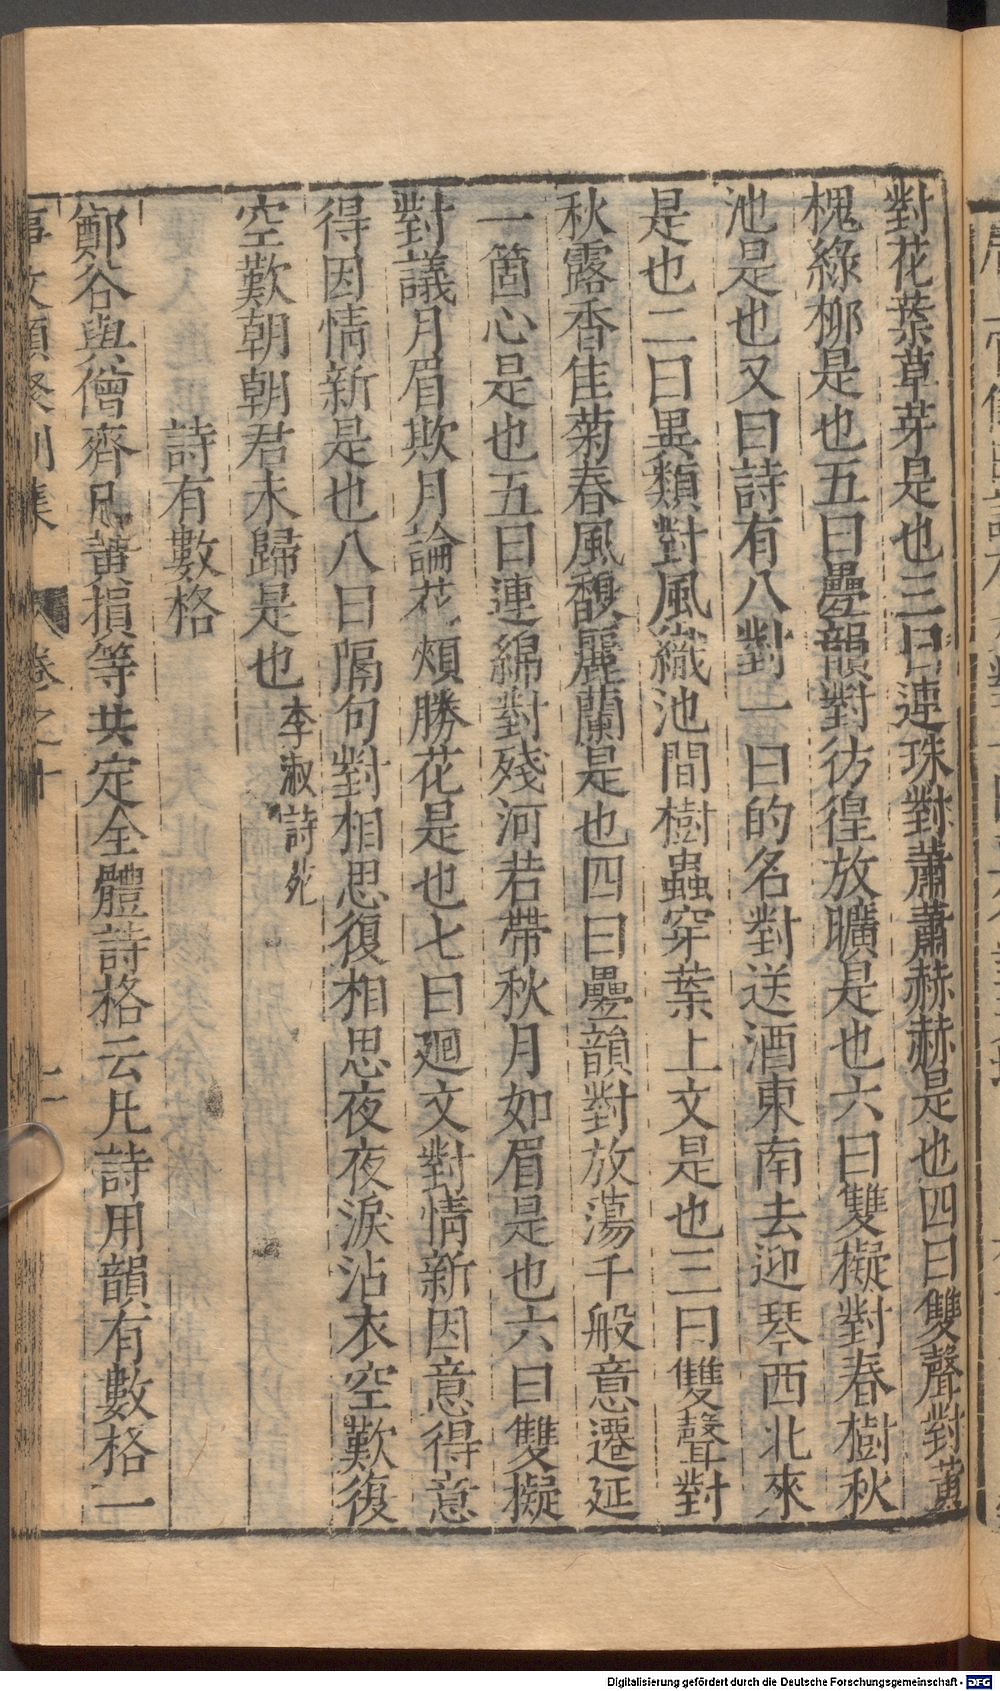 對花葉草芽是也三曰連珠對蕭蕭赫赫是也四曰雙聲對黃
槐綠柳是也五曰疊韻對彷徨放曠是也六曰雙擬對春樹秋
池是也又曰詩有八對一曰的名對送酒東南去迎琴西北來
是也二曰異類對風織池間樹蟲穿葉上文是也三曰雙聲對
秋露香佳菊春風馥麗蘭是也四曰疊韻對放蕩千般意遷延
一箇心是也五曰連綿對殘河若帶秋月如眉是也六曰雙擬
對議月眉欺月論花頰勝花是也七曰廻文對情新因意得意
得因情新是也八曰隔句對相思復相思夜夜淚沾衣空歎復
空歎朝朝君未歸是也李淑詩苑
詩有數格
鄭谷與僧齊己黃損等共定全體詩格云凡詩用韻有數格一
事文類聚別集 卷之十
Digitalisierung gefördert durch die Deutsche Forschungsgemeinschaft - DFG